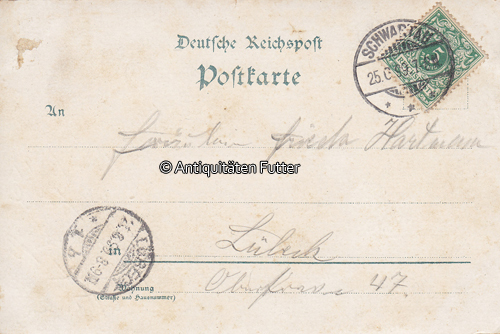 Deutsche Reichspost
Postkarte
SCHWARTAU
25.
5
An
Fräulein Frieda Hartmann
© Antiquitäten Futter
in Lübeck
Wohnung
(Straße und Hausnummer)
47.